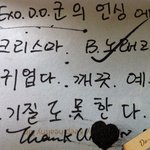 Exo.D.O.군의 인상 에
크리스마. B.노래리
귀엽다. 깨끗. 예.
기질 도 못 한 다.
Thank